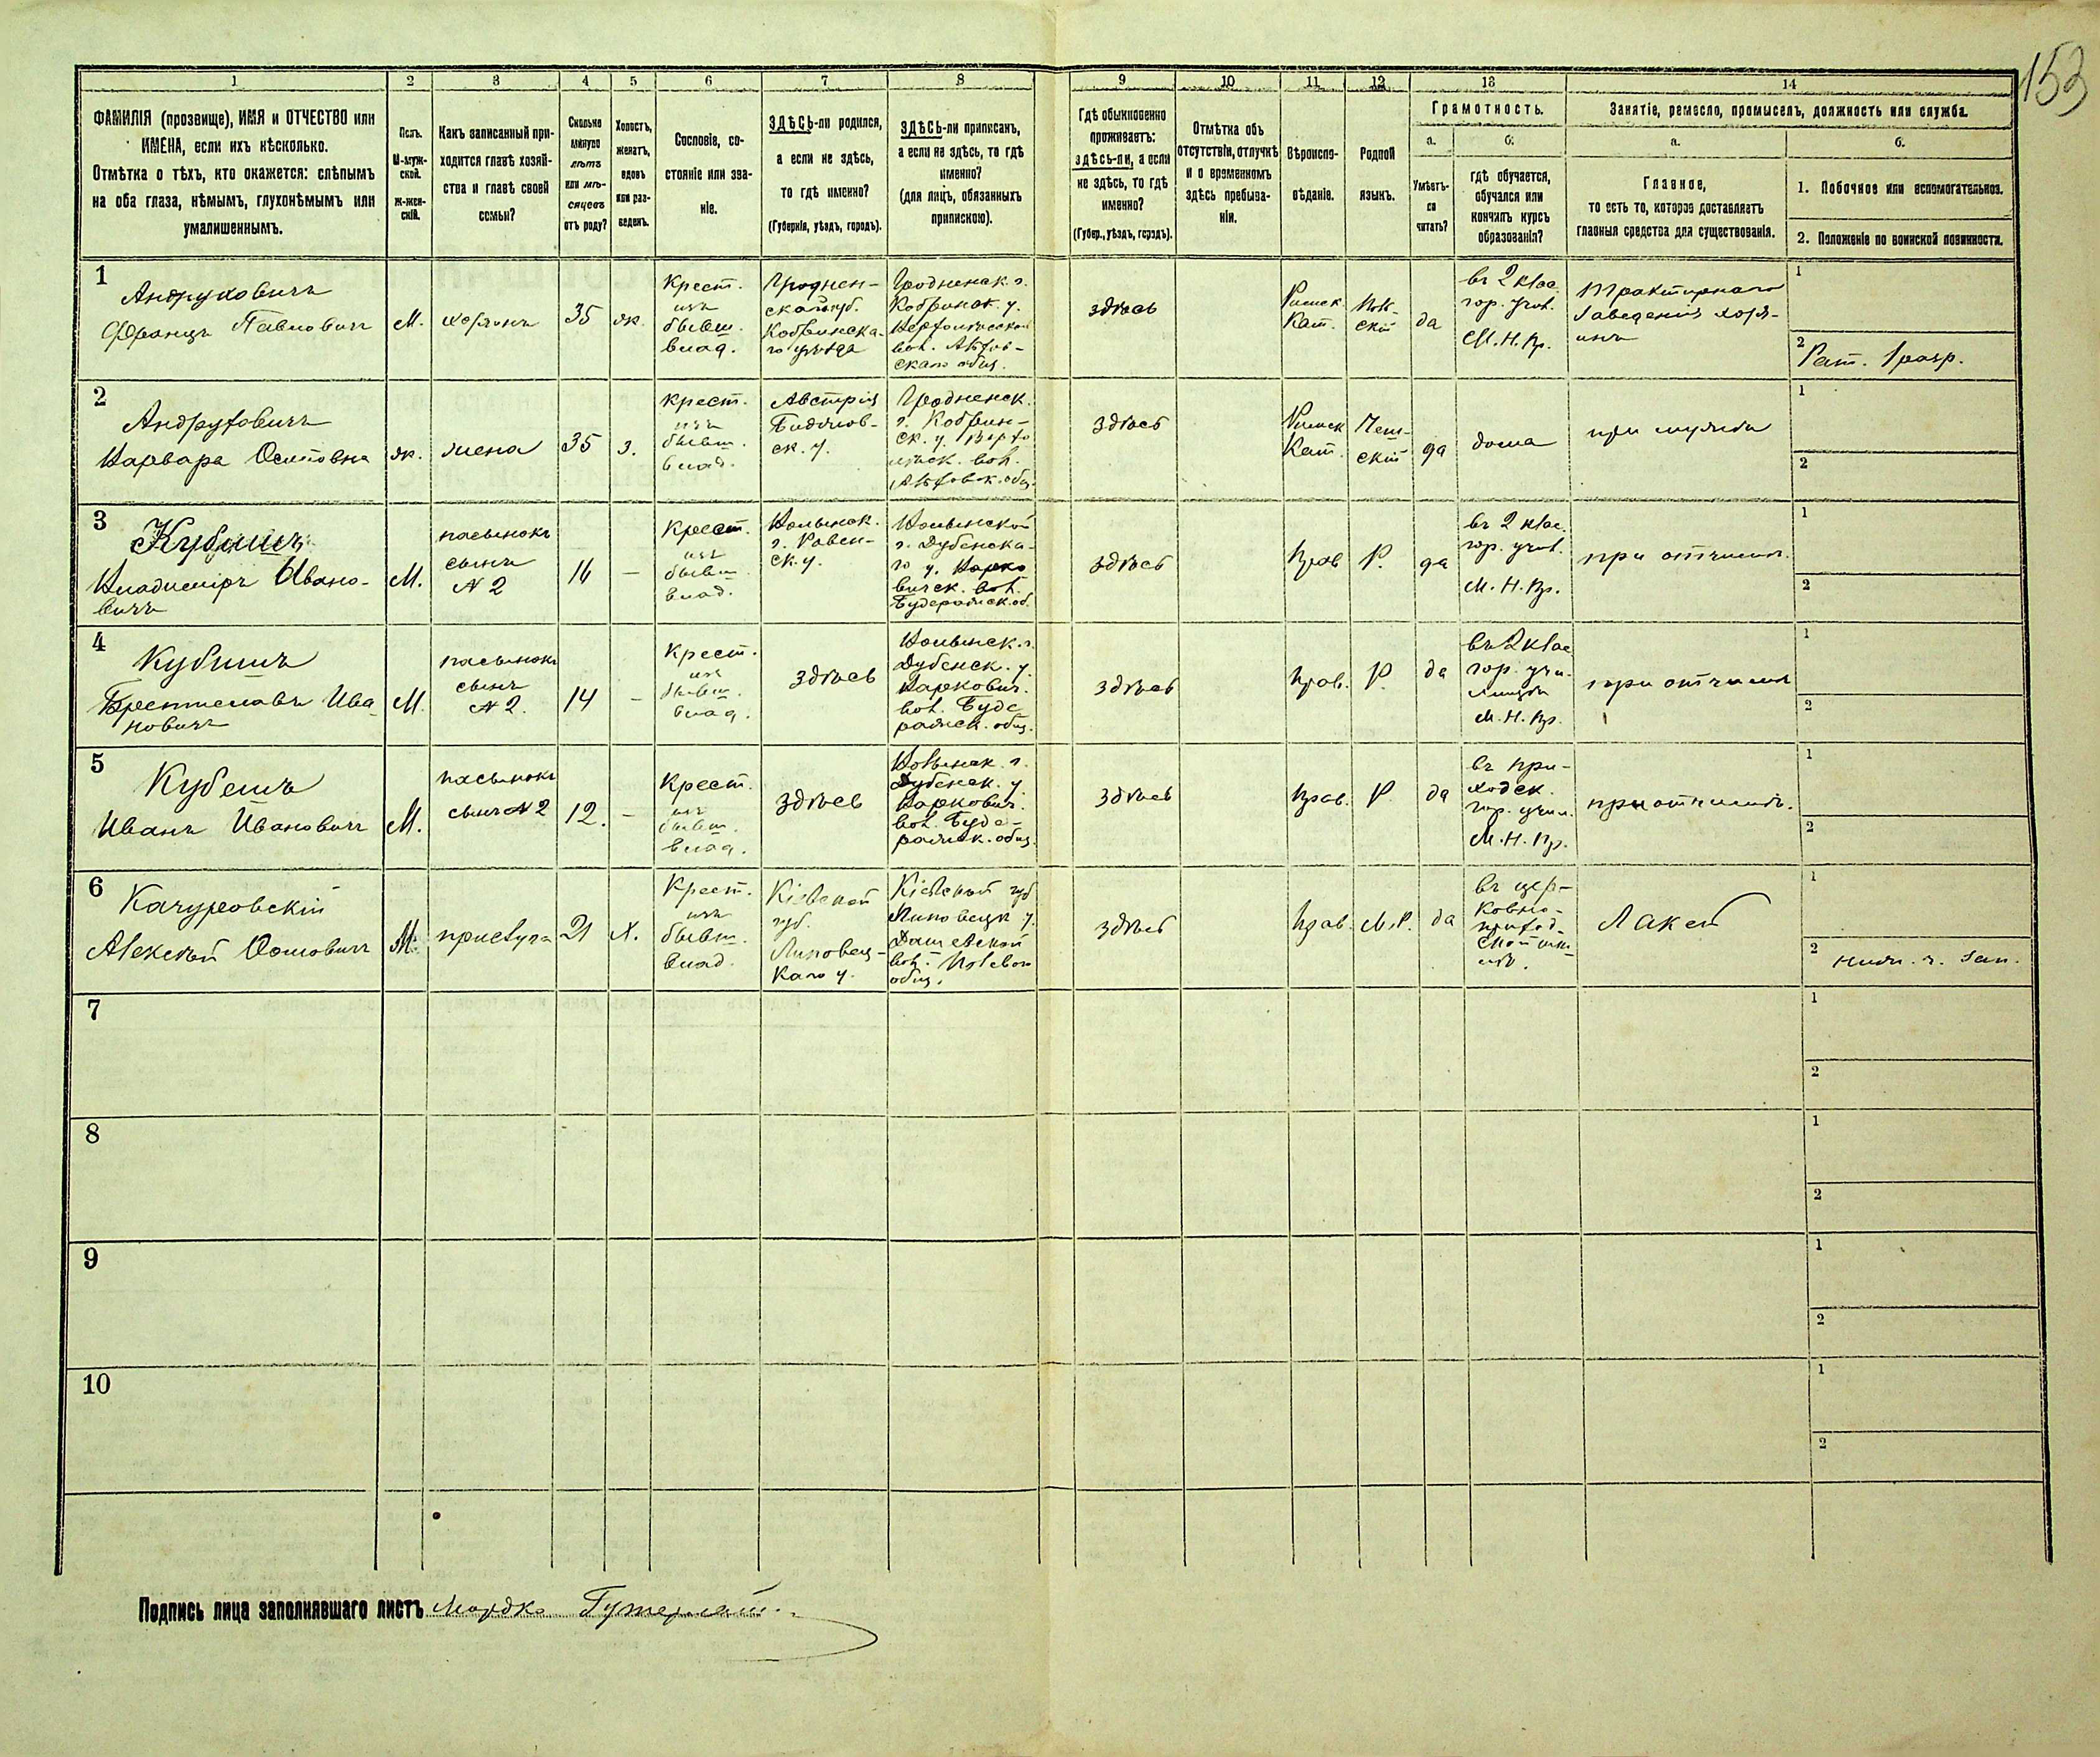 153
1 2 3 4 5 6 7 8 9 10 11 12 13 14
ФАМИЛІЯ (прозвище), ИМЯ и ОТЧЕСТВО или
ИМЕНА, если ихъ нѣсколько.
Отмѣтка о тѣхъ, кто окажется: слѣпымъ
на оба глаза, нѣмымъ, глухонѣмымъ или
умалишеннымъ.
Полъ.
М-муж-
ской.
Ж-жен-
скій.
Какъ записанный при-
ходится главѣ хозяй-
ства и главѣ своей
семьи?
Сколько
минуло
лѣтъ
или мѣ-
сяцевъ
отъ роду?
Холостъ,
женатъ,
вдовъ
или раз-
веденъ.
Сословіе, со-
стояніе или зва-
ніе.
ЗДѢСЬ-ли родился,
а если не здѣсь,
то гдѣ именно?
(Губернія, уѣздъ, городъ).
ЗДѢСЬ-ли приписанъ,
а если не здѣсь, то гдѣ
именно?
(для лицъ, обязанныхъ
припискою).
Гдѣ обыкновенно
проживаетъ:
здѣсь-ли, а если
не здѣсь, то гдѣ
именно?
(Губер., уѣздъ, городъ).
Отмѣтка объ
отсутствіи, отлучкѣ
и о временномъ
здѣсь пребыва-
ніи.
Вѣроиспо-
вѣданіе.
Родной
языкъ.
Грамотность.
а.
Умѣетъ-
ли
читать?
б.
гдѣ обучается,
обучался или
кончилъ курсъ
образованія?
Занятіе, ремесло, промыселъ, должность или служба.
а.
Главное,
то есть то, которое доставляетъ
главныя средства для существованія.
б.
1. Побочное или вспомогательное.
2. Положеніе по воинской повинности.
1
Андруховичъ
Францъ Павловичъ
М.
хозяинъ
35
ж.
Крест.
изъ
бывш.
влад.
Гроднен-
ской губ.
Кобринска-
го уѣзда
Гродненск. г.
Кобринск. у.
здѣсь
Римск.
Кат.
Поль-
скій
да
въ 2 клас.
гор. учил.
М. Н. Пр.
Трактирнаго
заведенія хозя-
инъ
1
2
Рат. 1 разр.
2
Андруховичъ
Варвара Осиповна
ж.
жена
35
з.
Крест.
изъ
бывш.
влад.
Австрія
ск. у.
Гродненск.
г. Кобрин-
ск. у.
здѣсь
Римск
Кат.
Чеш-
скій
да
дома
при мужѣ
1
2
3
Кубишъ
Владиміръ Ивано-
вичъ
М.
пасынокъ
сынъ
№ 2
16
—
Крест.
изъ
бывш.
влад.
Волынск.
г. Ровен-
ск. у.
Волынской
г. Дубенска-
го у. Варко
вичск. вол.
Будеражск. об.
здѣсь
Прав
Р.
да
въ 2 клас.
гор. учил.
М. Н. Пр.
при отчимѣ.
1
2
4
Кубишъ
Брестиславъ Ива
новичъ
М.
пасынокъ
сынъ
№ 2.
14
—
Крест.
изъ
бывш.
влад.
здѣсь
Волынск. г.
Дубенск. у.
Варкович.
вол. Буде
ражск. общ.
здѣсь
Прав.
Р.
да
въ 2 клас
гор. учи-
лищѣ
М. Н. Пр.
при отчимѣ
1
2
5
Кубешъ
Иванъ Ивановичъ
М.
пасынокъ
сынъ № 2
12.
—
Крест.
изъ
бывш.
влад.
здѣсь
Волынск. г.
Дубенск. у.
Варкович.
вол. Буде-
ражск. общ.
здѣсь
Прав.
Р.
да
въ при-
ходск.
гор. учил.
М. Н. Пр.
при отчимѣ.
1
2
6
Качуровскій
Алексѣй Фомовичъ
М.
прислуга
21
Х.
Крест.
изъ
бывш.
влад.
Кіевской
губ.
Липовец-
каго у.
Кіевской губ
Липовецк. у.
Дашевской
вол.
общ.
здѣсь
Прав.
М.Р.
да
въ цер-
ковно-
приход-
ской шко-
лѣ.
Лакей
1
2
нижн. ч. зап.
7
1
2
8
1
2
9
1
2
10
1
2
Подпись лица заполнявшаго листъ Мордко